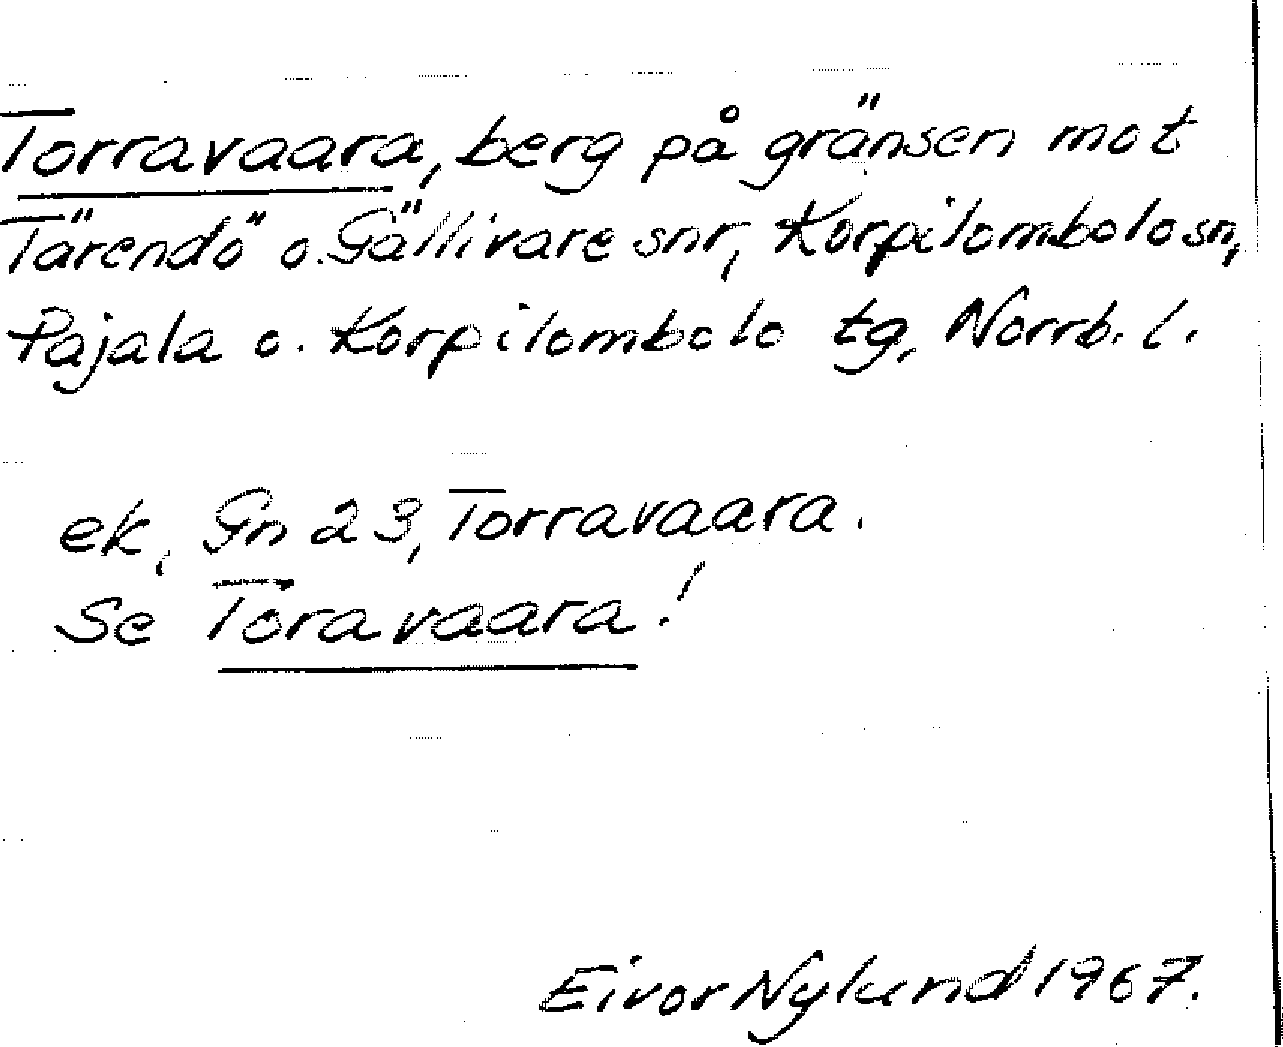 Torravaara, berg på gränsen mot
Tärendö o. Gällivare snr, Korpilombolo sn,
Pajala o. Korpilombolo tg, Norrb. l.
ek, Gn 23, Torravaara.
Se Toravaara!
Eivor Nylund 1967.